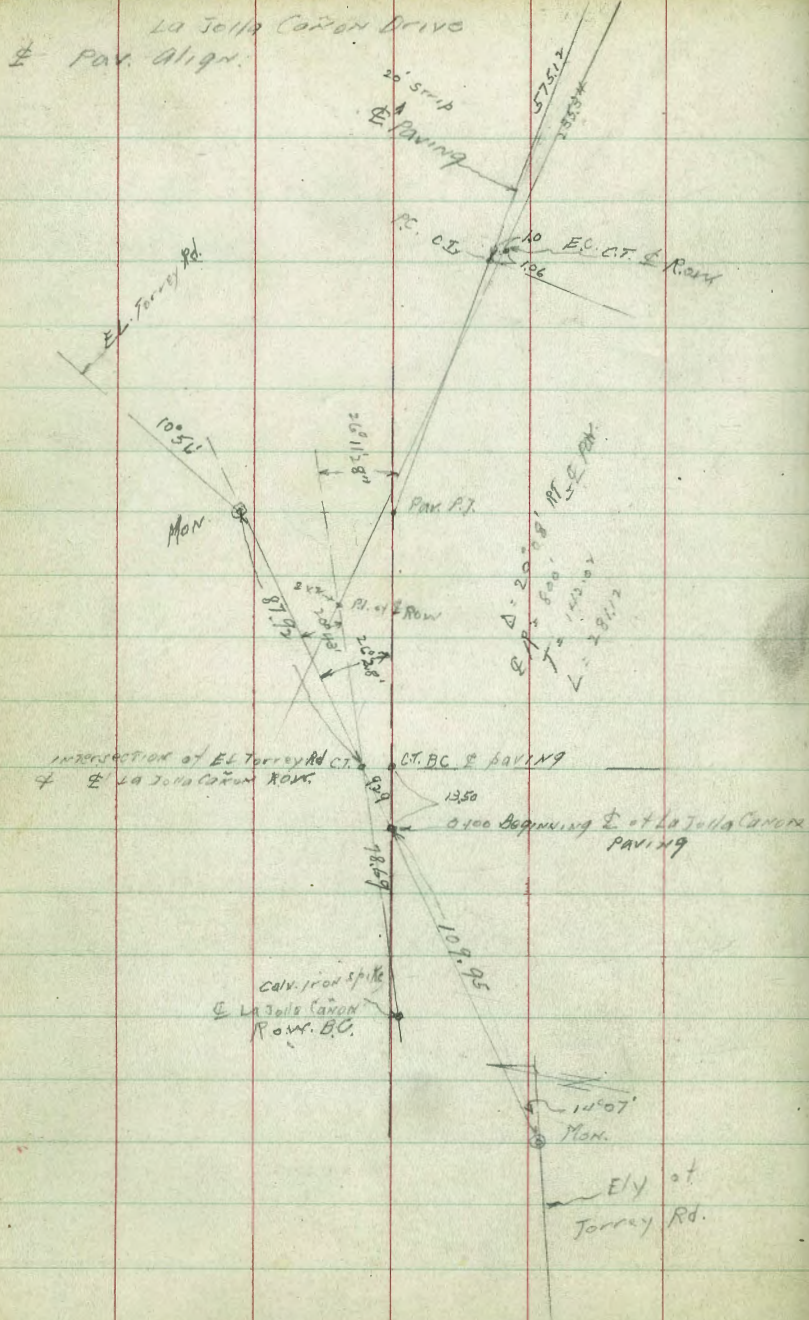 La Jolla Cañon Drive
℄ Pav. Align.
20' Strip
℄ Paving
575.12
P.C.
C.T.
1.0
1.06
E.C. C.T. ℄ R.O.W.
EL. Torrey Rd.
10°56'
Mon.
Pav. P.I.
87.92
P.I. of ℄ Row
20°43'
Δ = 20°08' RT ℄ R.W.
℄ R = 800'
L = 281.12
Intersection of EL Torrey Rd C.T.
& ℄ La Jolla Cañon Row.
C.T. BC ℄ paving
13.50
0+00 Beginning ℄ of La Jolla Canon
Paving
78.69
109.95
Galv. iron spike
℄ La Jolla Cañon
R.O.W. B.C.
14°07'
Mon.
Ely of
Torrey Rd.